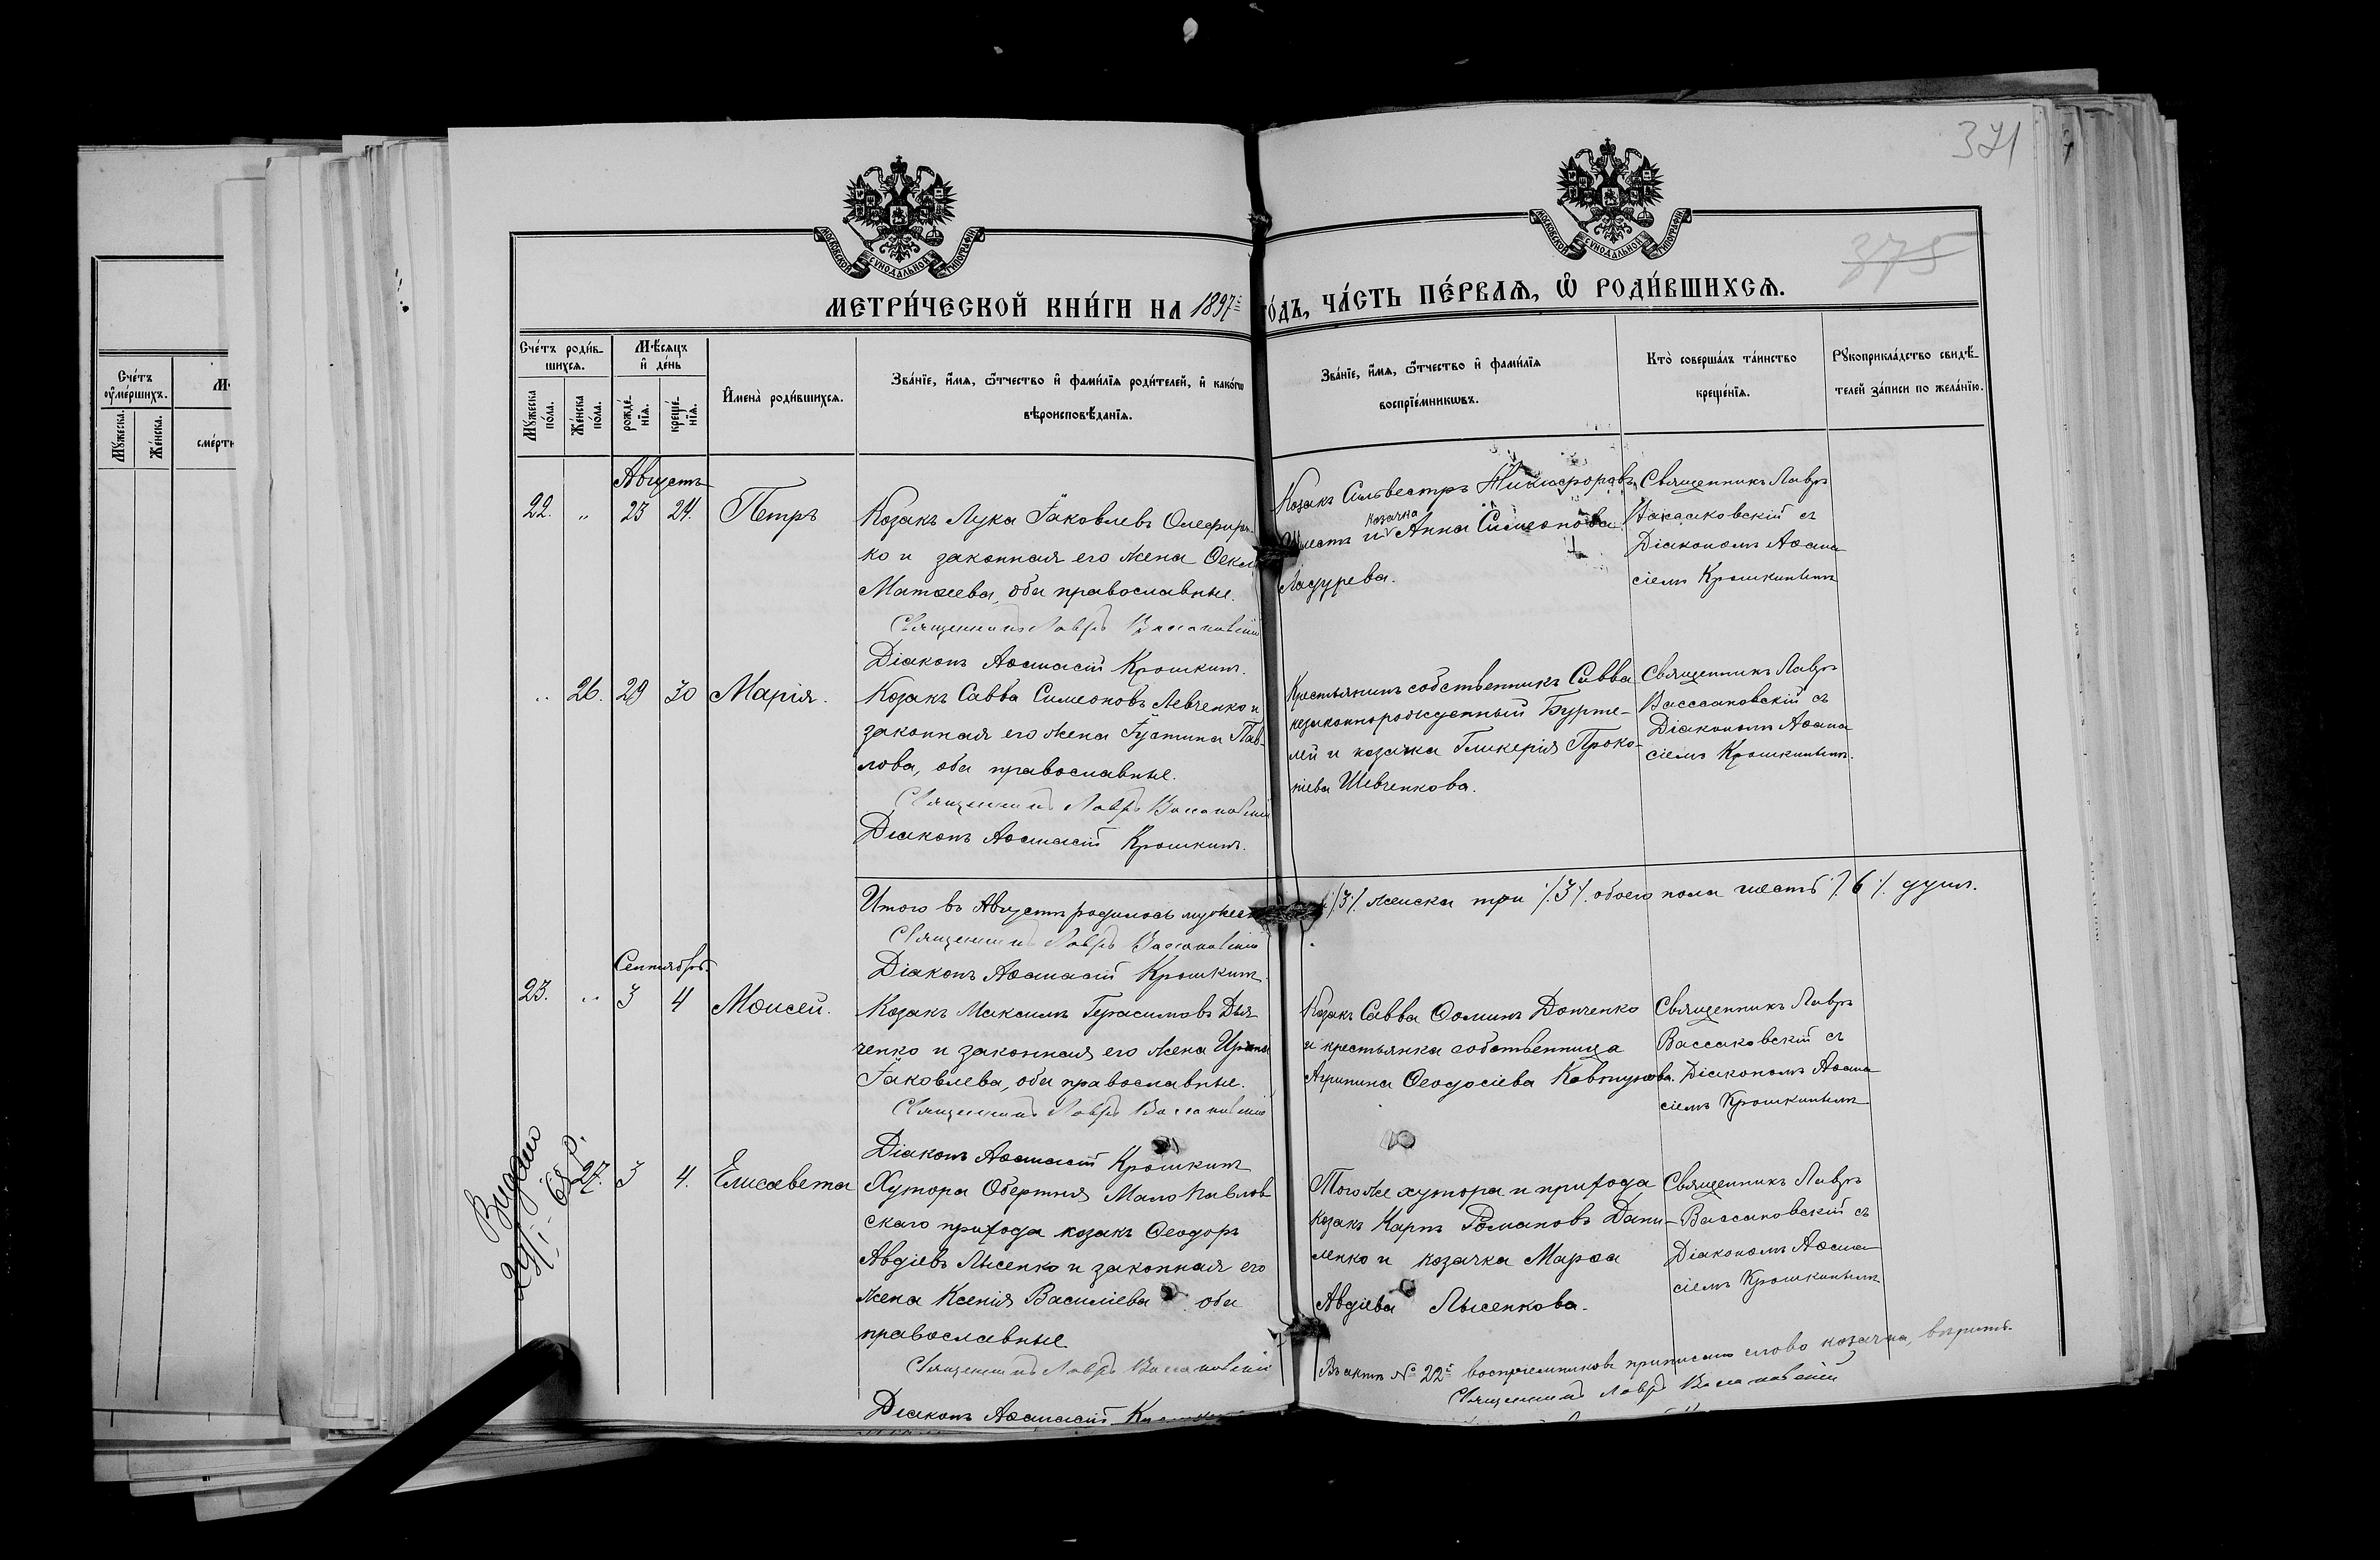 371
375
МОСКОВСКОЙ СѴНОДАЛЬНОЙ ТИПОГРАФІИ
МОСКОВСКОЙ СѴНОДАЛЬНОЙ ТИПОГРАФІИ
МЕТРИ́ЧЕСКОЙ КНИ́ГИ НА 1897 ГО́ДЪ, ЧА́СТЬ ПЕ́РВАѦ, Ѡ РОДИ́ВШИХСѦ.
Сче́тъ роди́в-
шихсѧ.
Мꙋ́жеска по́ла.
Же́нска по́ла.
Мѣ́сѧцъ
и де́нь
рожде́-
нїѧ.
креще́-
нїѧ.
И҆мена̀ роди́вшихсѧ.
Зва́нїе, и҆́мѧ, ѻ҆́тчество и҆ фами́лїѧ роди́телей, и҆ како́гѡ
вѣроисповѣ́данїѧ.
Зва́нїе, и҆́мѧ, ѻ҆́тчество и҆ фами́лїѧ
воспрїе́мникѡвъ.
Кто̀ соверша́лъ та́инство
креще́нїѧ.
Рꙋкоприкла́дство свидѣ́-
телей за́писи по жела́нїю.
Сче́тъ
ᲂу҆ме́ршихъ.
Мꙋ́жеска.
Же́нска.
сме́рти
Августъ
22. " 23 24. Петръ
Козакъ Лука Іаковлевъ Олефирен-
ко и законная его жена Ѳекла
Матѳеева, оба православные.
Священникъ Лавръ Вассаковскій
Діаконъ Аѳанасій Крошкинъ.
Козакъ Сильвестръ Никифоровъ
козачка
Шестъ и Анна Симеонова
Ладурева.
Священникъ Лавръ
Вассаковскій съ
Діакономъ Аѳана
сіемъ Крошкинымъ
" 26. 29 30 Марія.
Козакъ Савва Симеоновъ Левченко и
законная его жена Іустина Пав-
лова, оба православные.
Священникъ Лавръ Вассаковскій
Діаконъ Аѳанасій Крошкинъ.
Крестьянинъ собственникъ Савва
незаконнорожденный Бурме-
лей и козачка Гликерія Проко-
піева Шевченкова.
Священникъ Лавръ
Вассаковскій съ
Діакономъ Аѳана
сіемъ Крошкинымъ.
Итого въ Августѣ родилось мужеска /3/. женска три /3/. обоего пола шесть /6/. душъ.
Священникъ Лавръ Вассаковскій
Діаконъ Аѳанасій Крошкинъ.
Сентябрь.
23. " 3 4 Моисей.
Козакъ Максимъ Герасимовъ Дья-
ченко и законная его жена Ирина
Іаковлева, оба православные.
Священникъ Лавръ Вассаковскій
Діаконъ Аѳанасій Крошкинъ
Козакъ Савва Ѳоминъ Донченко
и крестьянка собственница
Агрипина Ѳеодосіева Ковтунова.
Священникъ Лавръ
Вассаковскій съ
Діакономъ Аѳана
сіемъ Крошкинымъ
Видано
27. 3 4. Елисавета
Хутора Обертня Мало Павлов
скаго прихода козакъ Ѳеодоръ
Авдіевъ Лысенко и законная его
жена Ксенія Василіева оба
православные
Священникъ Лавръ Вассаковскій
Діаконъ Аѳанасій
Того же хутора и прихода
козакъ Карпъ Романовъ Дани-
ленко и козачка Марѳа
Авдіева Лысенкова.
Священникъ Лавръ
Вассаковскій съ
Діакономъ Аѳана
сіемъ Крошкинымъ
Въ актѣ № 22 воспріемниковъ приписано слово козачка, вѣрить.
Священникъ Лавръ Вассаковскій